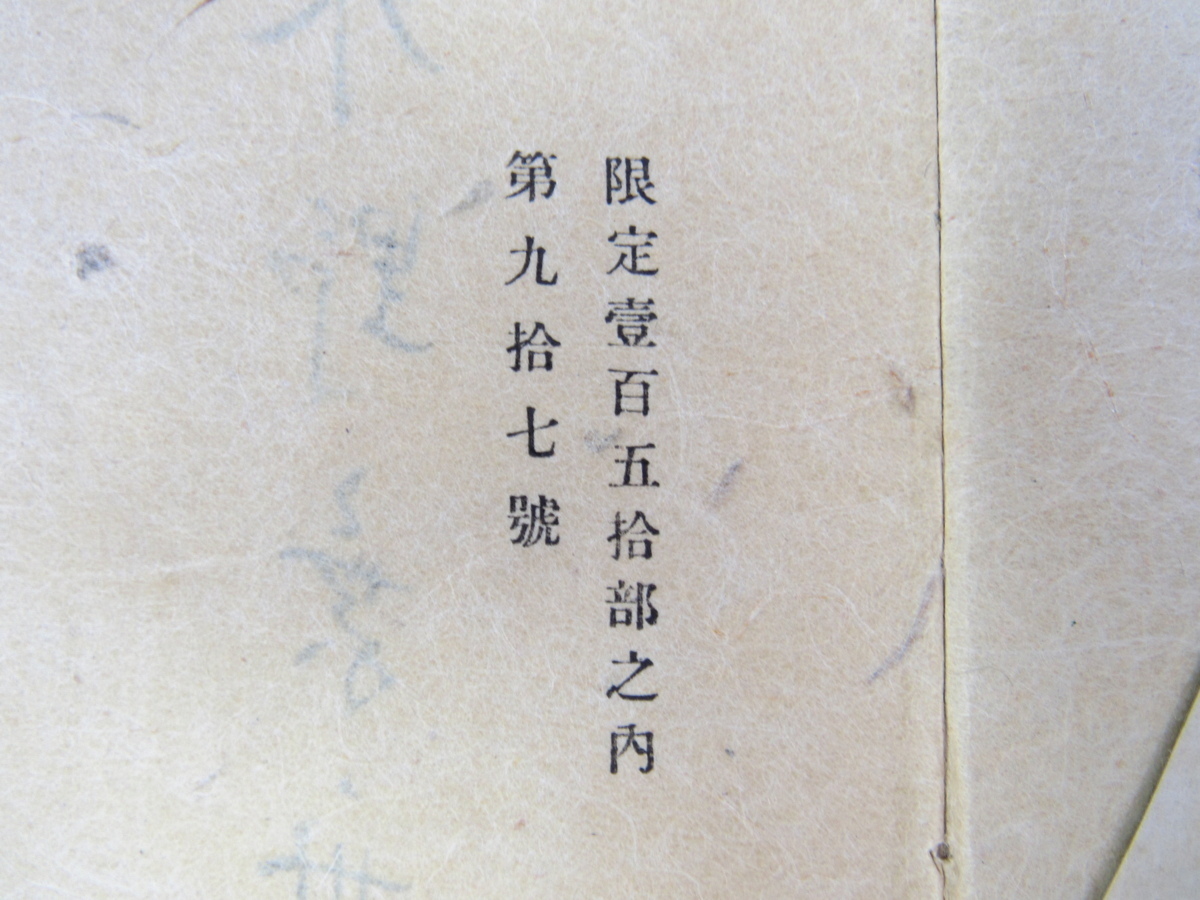 限定壹百五拾部之內
第九拾七號